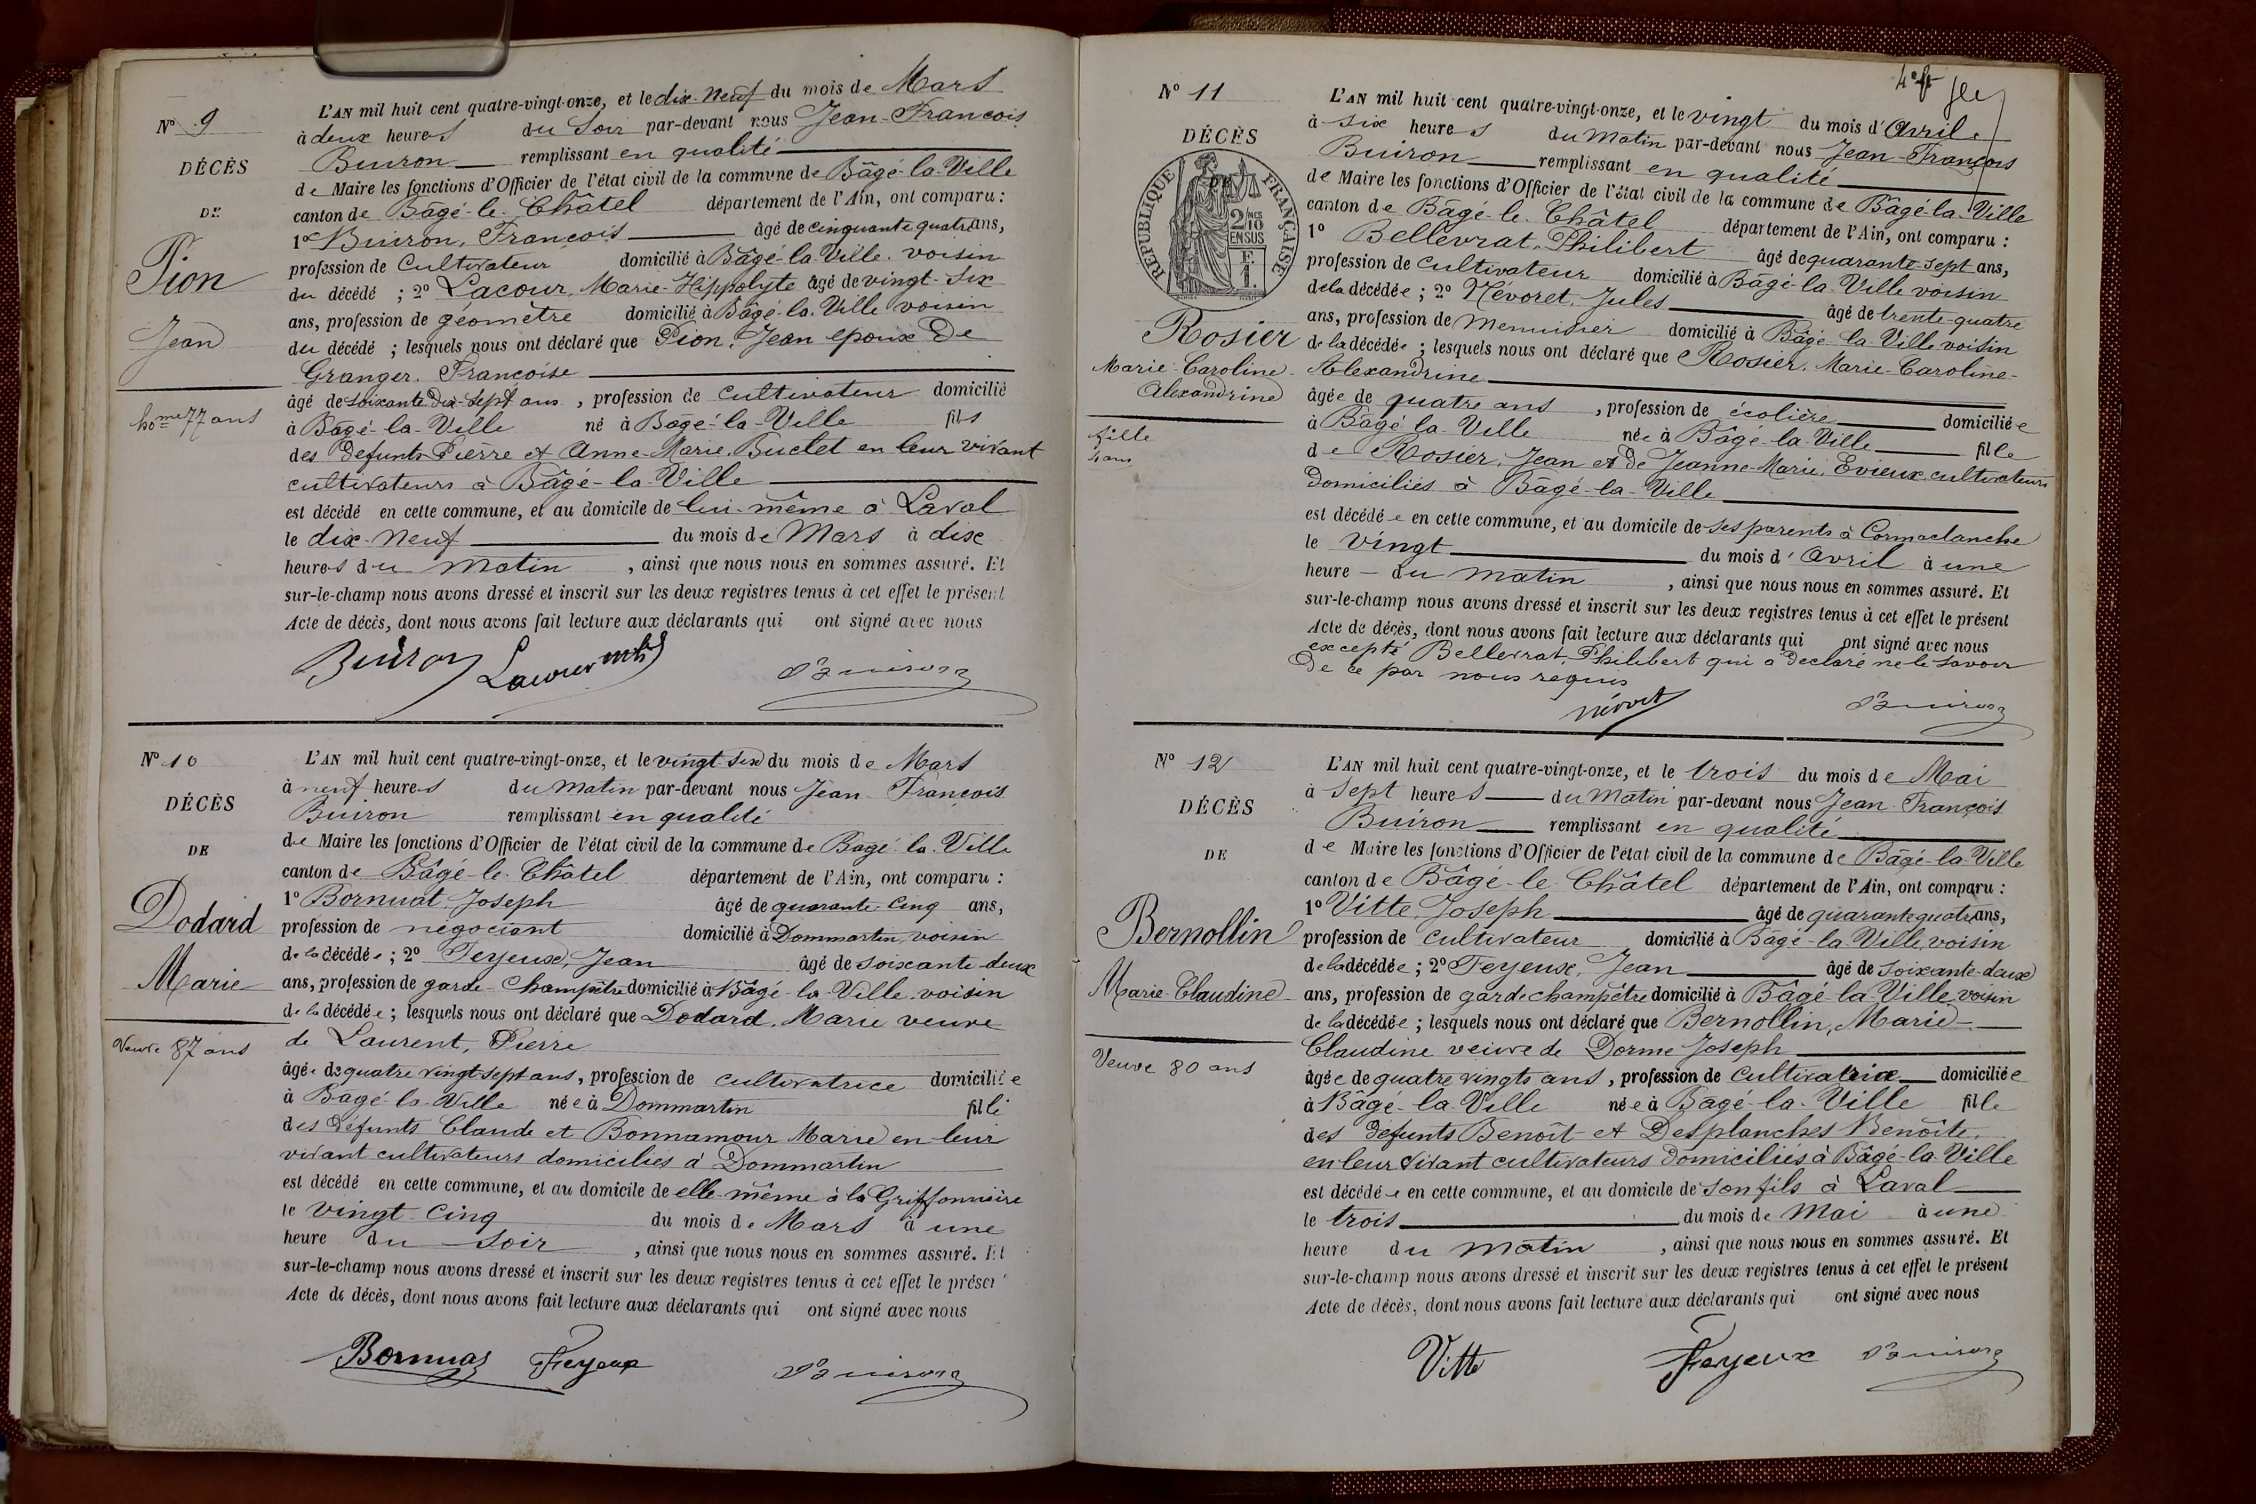 N° 9
DÉCÈS
DE
Pion
Jean
hom.me 77 ans
L'AN mil huit cent quatre-vingt-onze, et le dix-neuf du mois de Mars
à deux heures du Soir par-devant nous Jean-François
Buiron remplissant en qualité
de Maire les fonctions d'Officier de l'état civil de la commune de Bâgé-la-Ville
canton de Bâgé-le-Châtel département de l'Ain, ont comparu :
1° Buiron, François âgé de cinquante quatre ans,
profession de Cultivateur domicilié à Bâgé-la-Ville voisin
du décédé ; 2° Lacour, Marie-Hippolyte âgé de vingt-six
ans, profession de géomètre domicilié à Bâgé-la-Ville voisin
du décédé ; lesquels nous ont déclaré que Pion, Jean epoux de
Granger, Françoise
âgé de soixante dix-sept ans, profession de cultivateur domicilié
à Bâgé-la-Ville né à Bâgé-la-Ville fils
des défunts Pierre et Anne-Marie Buclet en leur vivant
cultivateurs à Bâgé-la-Ville
est décédé en cette commune, et au domicile de lui-même à Laval
le dix-neuf du mois de Mars à dix
heures du matin, ainsi que nous nous en sommes assuré. Et
sur-le-champ nous avons dressé et inscrit sur les deux registres tenus à cet effet le présent
Acte de décès, dont nous avons fait lecture aux déclarants qui ont signé avec nous
Buiron Lacour Buiron
N° 10
DÉCÈS
DE
Dodard
Marie
Veuve 87 ans
L'AN mil huit cent quatre-vingt-onze, et le vingt-six du mois de Mars
à neuf heures du matin par-devant nous Jean-François
Buiron remplissant en qualité
de Maire les fonctions d'Officier de l'état civil de la commune de Bâgé-la-Ville
canton de Bâgé-le-Châtel département de l'Ain, ont comparu :
1° Bornuat, Joseph âgé de quarante-cinq ans,
profession de négociant domicilié à Dommartin, voisin
de la décédée ; 2° Feyeux, Jean âgé de soixante-deux
ans, profession de garde-champêtre domicilié à Bâgé-la-Ville voisin
de la décédée ; lesquels nous ont déclaré que Dodard, Marie veuve
de Laurent, Pierre
âgée de quatre vingt sept ans, profession de cultivatrice domiciliée
à Bâgé-la-Ville née à Dommartin fille
des défunts Claude et Bonnamour Marie en leur
vivant cultivateurs domiciliés à Dommartin
est décédé en cette commune, et au domicile de elle-même à la Griffonnière
le vingt-cinq du mois de Mars à une
heure du soir, ainsi que nous nous en sommes assuré. Et
sur-le-champ nous avons dressé et inscrit sur les deux registres tenus à cet effet le présent
Acte de décès, dont nous avons fait lecture aux déclarants qui ont signé avec nous
Bornuat Feyeux Buiron
N° 11
DÉCÈS
DE
RÉPUBLIQUE FRANÇAISE
2/10 EN SUS
Rosier
Marie-Caroline-
Alexandrine
fille
4 ans
L'AN mil huit cent quatre-vingt-onze, et le vingt du mois d'Avril
à six heures du matin par-devant nous Jean-François
Buiron remplissant en qualité
de Maire les fonctions d'Officier de l'état civil de la commune de Bâgé-la-Ville
canton de Bâgé-le-Châtel département de l'Ain, ont comparu :
1° Bellevrat, Philibert âgé de quarante-sept ans,
profession de cultivateur domicilié à Bâgé-la-Ville voisin
de la décédée ; 2° Névoret, Jules âgé de trente-quatre
ans, profession de menuisier domicilié à Bâgé-la-Ville voisin
de la décédée ; lesquels nous ont déclaré que Rosier, Marie-Caroline-
Alexandrine
âgée de quatre ans, profession de écolière domiciliée
à Bâgé-la-Ville née à Bâgé-la-Ville fille
de Rosier, Jean et de Jeanne-Marie, Evieux cultivateurs
domiciliés à Bâgé-la-Ville
est décédée en cette commune, et au domicile de ses parents à Cormaclanche
le vingt du mois d'Avril à une
heure du matin, ainsi que nous nous en sommes assuré. Et
sur-le-champ nous avons dressé et inscrit sur les deux registres tenus à cet effet le présent
Acte de décès, dont nous avons fait lecture aux déclarants qui ont signé avec nous
excepté Bellevrat, Philibert qui a déclaré ne le savoir
de ce par nous requis
Névoret Buiron
N° 12
DÉCÈS
DE
Bernollin
Marie-Claudine
Veuve 80 ans
L'AN mil huit cent quatre-vingt-onze, et le trois du mois de Mai
à sept heures du matin par-devant nous Jean-François
Buiron remplissant en qualité
de Maire les fonctions d'Officier de l'état civil de la commune de Bâgé-la-Ville
canton de Bâgé-le-Châtel département de l'Ain, ont comparu :
1° Vitte, Joseph âgé de quarante quatre ans,
profession de cultivateur domicilié à Bâgé-la-Ville, voisin
de la décédée ; 2° Feyeux, Jean âgé de soixante-deux
ans, profession de garde champêtre domicilié à Bâgé-la-Ville voisin
de la décédée ; lesquels nous ont déclaré que Bernollin, Marie-
Claudine veuve de Dorme Joseph
âgée de quatre vingts ans, profession de cultivatrice domiciliée
à Bâgé-la-Ville née à Bâgé-la-Ville fille
des defunts Benoît et Desplanches Benoîte,
en leur vivant cultivateurs domiciliés à Bâgé-la-Ville
est décédée en cette commune, et au domicile de son fils à Laval
le trois du mois de Mai à une
heure du matin, ainsi que nous nous en sommes assuré. Et
sur-le-champ nous avons dressé et inscrit sur les deux registres tenus à cet effet le présent
Acte de décès, dont nous avons fait lecture aux déclarants qui ont signé avec nous
Vitte Feyeux Buiron